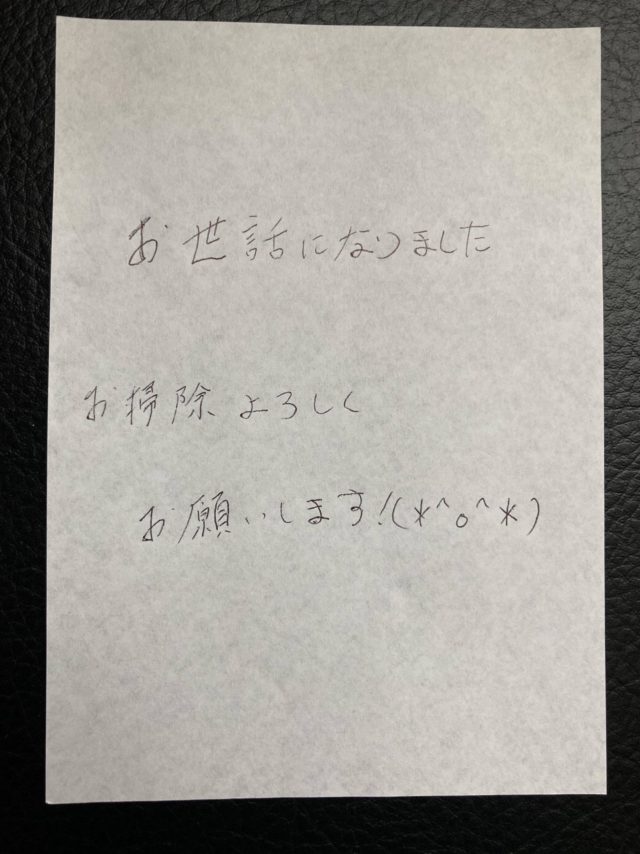 お世話になりました
お掃除よろしく
お願いします!(*^o^*)